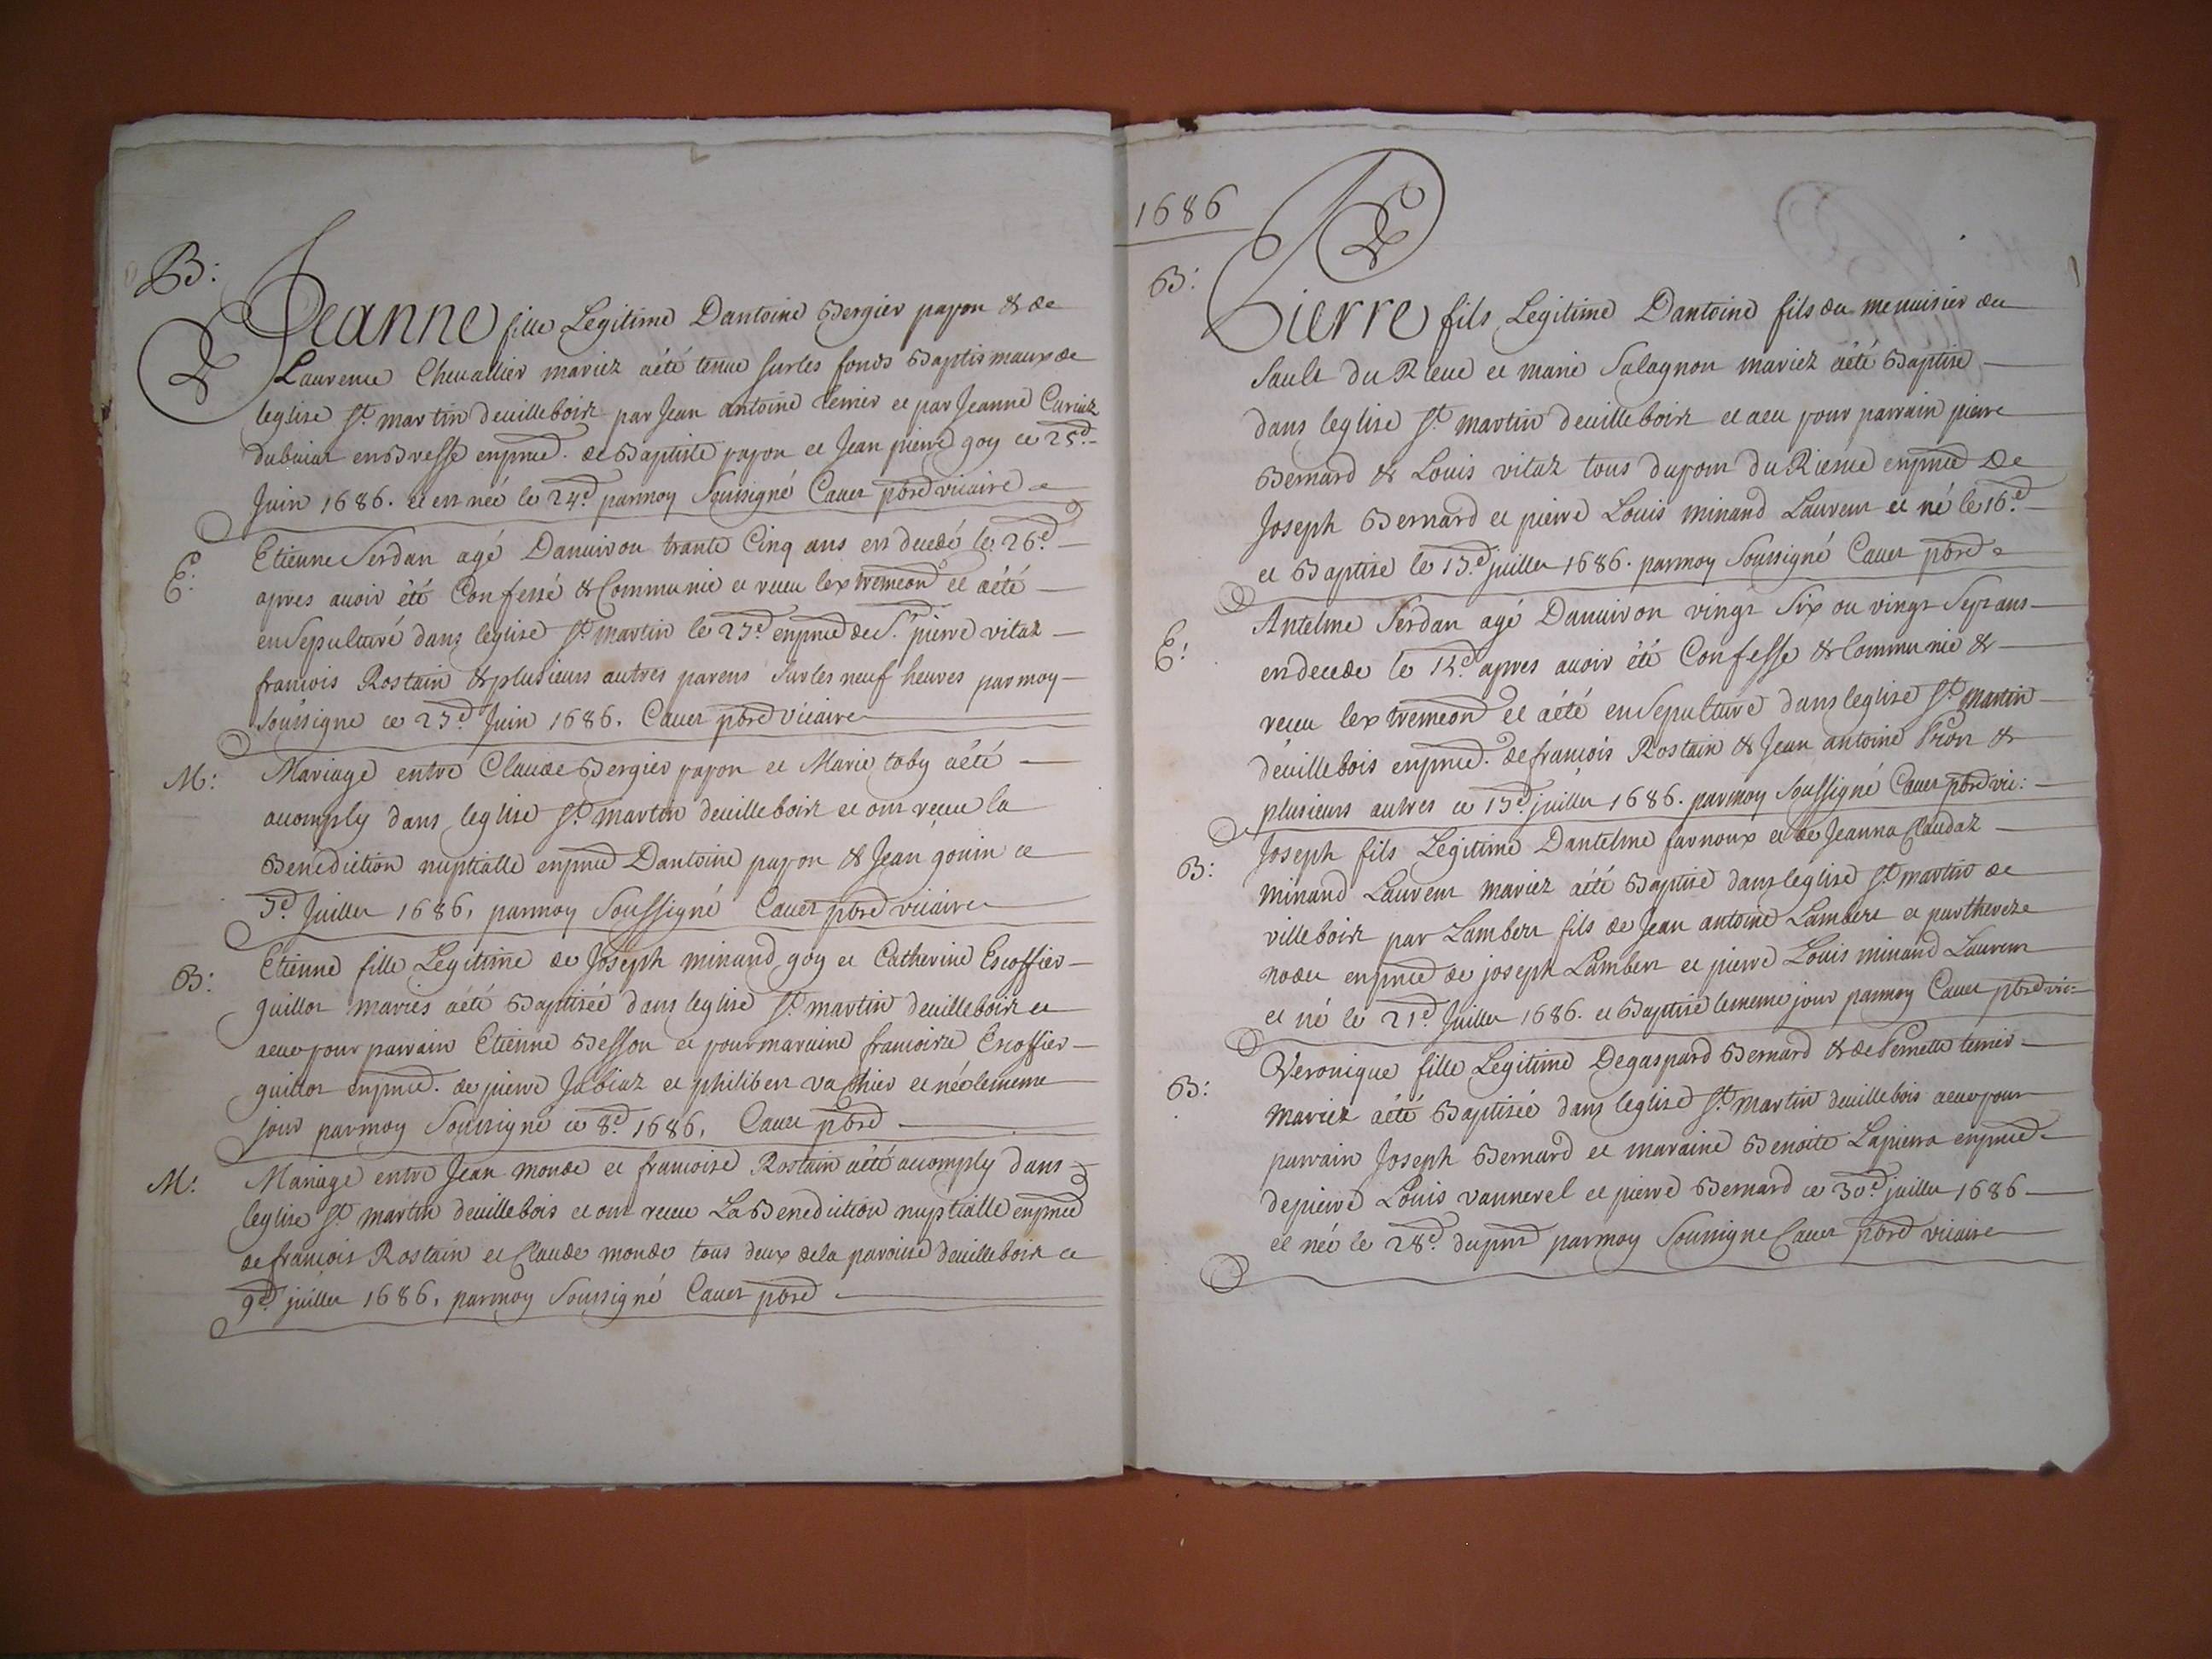 B:
Jeanne fille Legitime Dantoine Bergier papon & de
Laurence Cheuallier mariez aété tenue sur les fonds Baptismaux de
leglise St. martin deuilleboix par Jean antoine terrier et par Jeanne
en Bresse enpnce. de Baptiste papon et Jean pierre goy ce 25e.
Juin 1686. et en neé le 24e. parmoy Soussigné Cauet pbre vicaire
E:
Etienne Serdan agé Danuiron trante Cinq ans en decedé le 26e.
apres auoir été Confessé & Communié et receu lextremeon et aété
enSepulturé dans leglise St. martin le 27e. enpnce de Sr. pierre vitaz
francois Rostain & plusieurs autres parens Sur les neuf heures parmoy
soussigne ce 27e. Juin 1686. Cauet pbre Vicaire
M:
Mariage entre Claude Bergier papon et Marie toby aété
accomply dans leglise St. martin deuilleboix et ont receu la
Benediction nuptialle enpnce Dantoine papon & Jean gouin ce
Juillet 1686, parmoy Soussigné Cauet pbre vicaire
B:
Etienne fille Legitime de Joseph minand goy et Catherine Escoffier
guillot mariés aété Baptisée dans leglise St. martin deuilleboix et
aeue pour parrain Etienne Besson et pour maraine francoise Escoffier
guillot enpnce. de pierre Jubiaz et philibert vachier et née lememe
jour parmoy Soussigné ce 8e. 1686, Cauet pbre
M:
Mariage entre Jean monde et francoise Rostain aété accomply dans
leglise St. martin deuillebois et ont receu La Benediction nuptialle enpnce
de francois Rostain et Claude monde tous deux dela paroisse deuilleboix ce
9e. juillet 1686, parmoy Soussigné Cauet pbre
1686
B:
Pierre fils Legitime Dantoine fils du menuisier du
Sault du Rieue et marie Salagnon mariez aété Baptise
dans leglise St. martin deuilleboix et aeu pour parrain pierre
Bernard & Louis vitaz tous dupont du enpnce De
Joseph Bernard et pierre Louis minand Laurent et né le 16e.
et Baptise le 17e. juillet 1686. parmoy Soussigné Cauet pbre
E:
Antelme Serdan agé Danuiron vingt Six ou vingt Sept ans
en decede le apres auoir été Confesse & Communié &
receu lextremeon et aété enSepulturé dans leglise St. martin
deuillebois enpnce. de francois Rostain & Jean antoine &
plusieurs autres ce juillet 1686. parmoy Soussigné Cauet pbre vic:
B:
Joseph fils Legitime Dantelme farnoux et de Jeanna Claudaz
minand Laurent mariez aété Baptisé dans leglise St. martin de
villeboix par Lambert fils de Jean antoine Lambert et par thereze
nodet enpnce de joseph Lambert et pierre Louis minand Laurent
et né le 21e. Juillet 1686. et Baptisé lememe jour parmoy Cauet pbre vic:
B:
Veronique fille Legitime Degaspard Bernard & de Pernette terrier
Mariez aété Baptisée dans leglise St. martin deuillebois aeue pour
parrain Joseph Bernard et maraine Benoite Lapierra enpnce.
de pierre Louis vannerel et pierre Bernard ce 30e. juillet 1686
et neé le 28e. dupnt parmoy Soussigne Cauet pbre vicaire